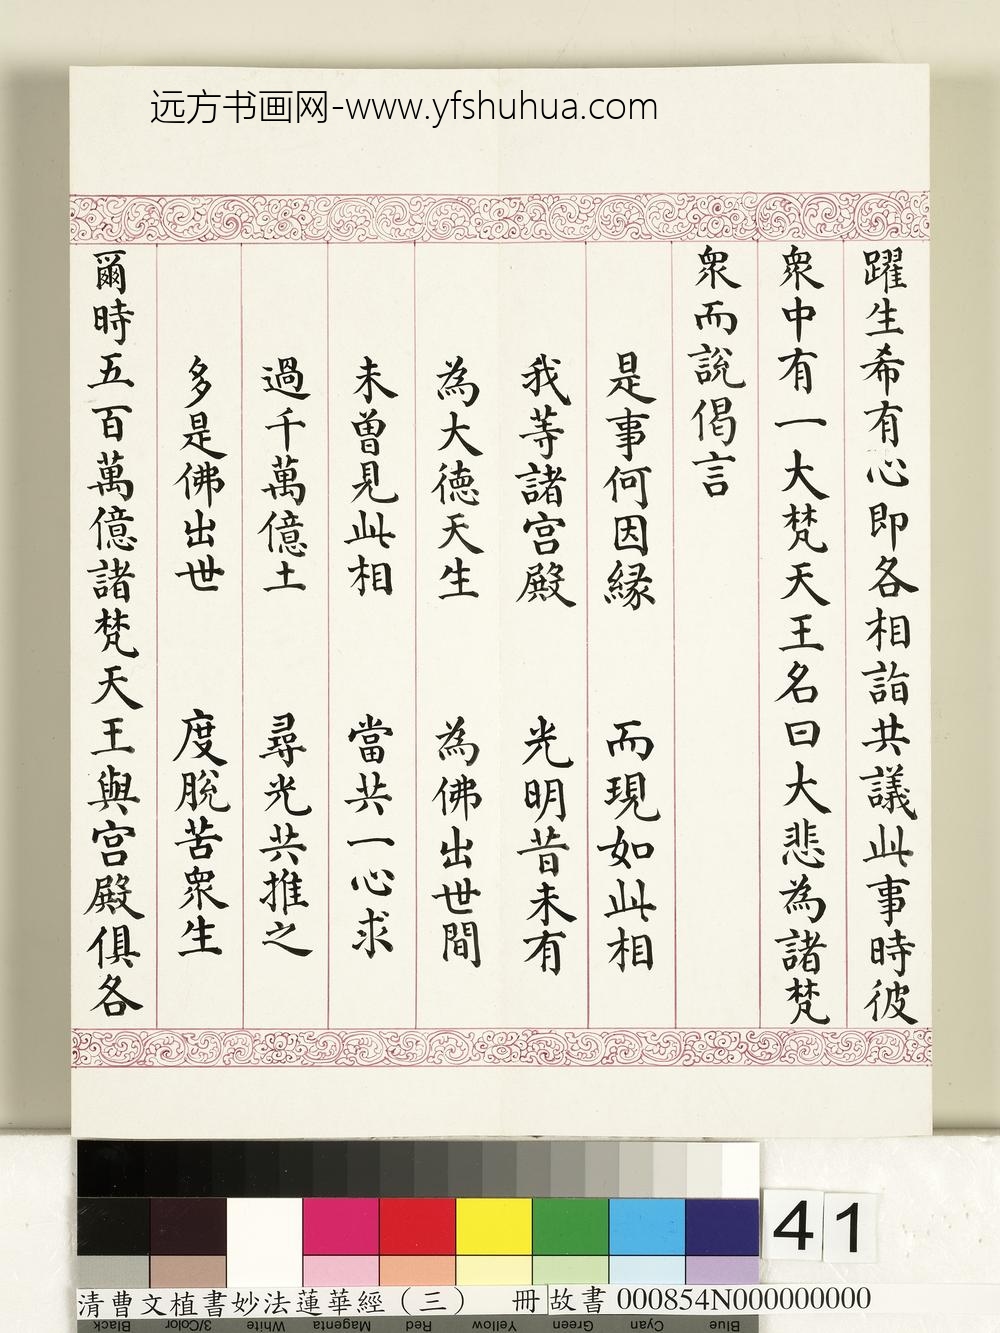 远方书画网-www.yfshuhua.com
躍生希有心即各相詣共議此事時彼
衆中有一大梵天王名曰大悲為諸梵
衆而說偈言
是事何因緣 而現如此相
我等諸宫殿 光明昔未有
為大德天生 為佛出世間
未曾見此相 當共一心求
過千萬億土 尋光共推之
多是佛出世 度脫苦衆生
爾時五百萬億諸梵天王與宫殿俱各
41
清曹文植書妙法蓮華經（三） 冊 故書 000854N000000000
Black 3/Color White Magenta Red Yellow Green Cyan Blue